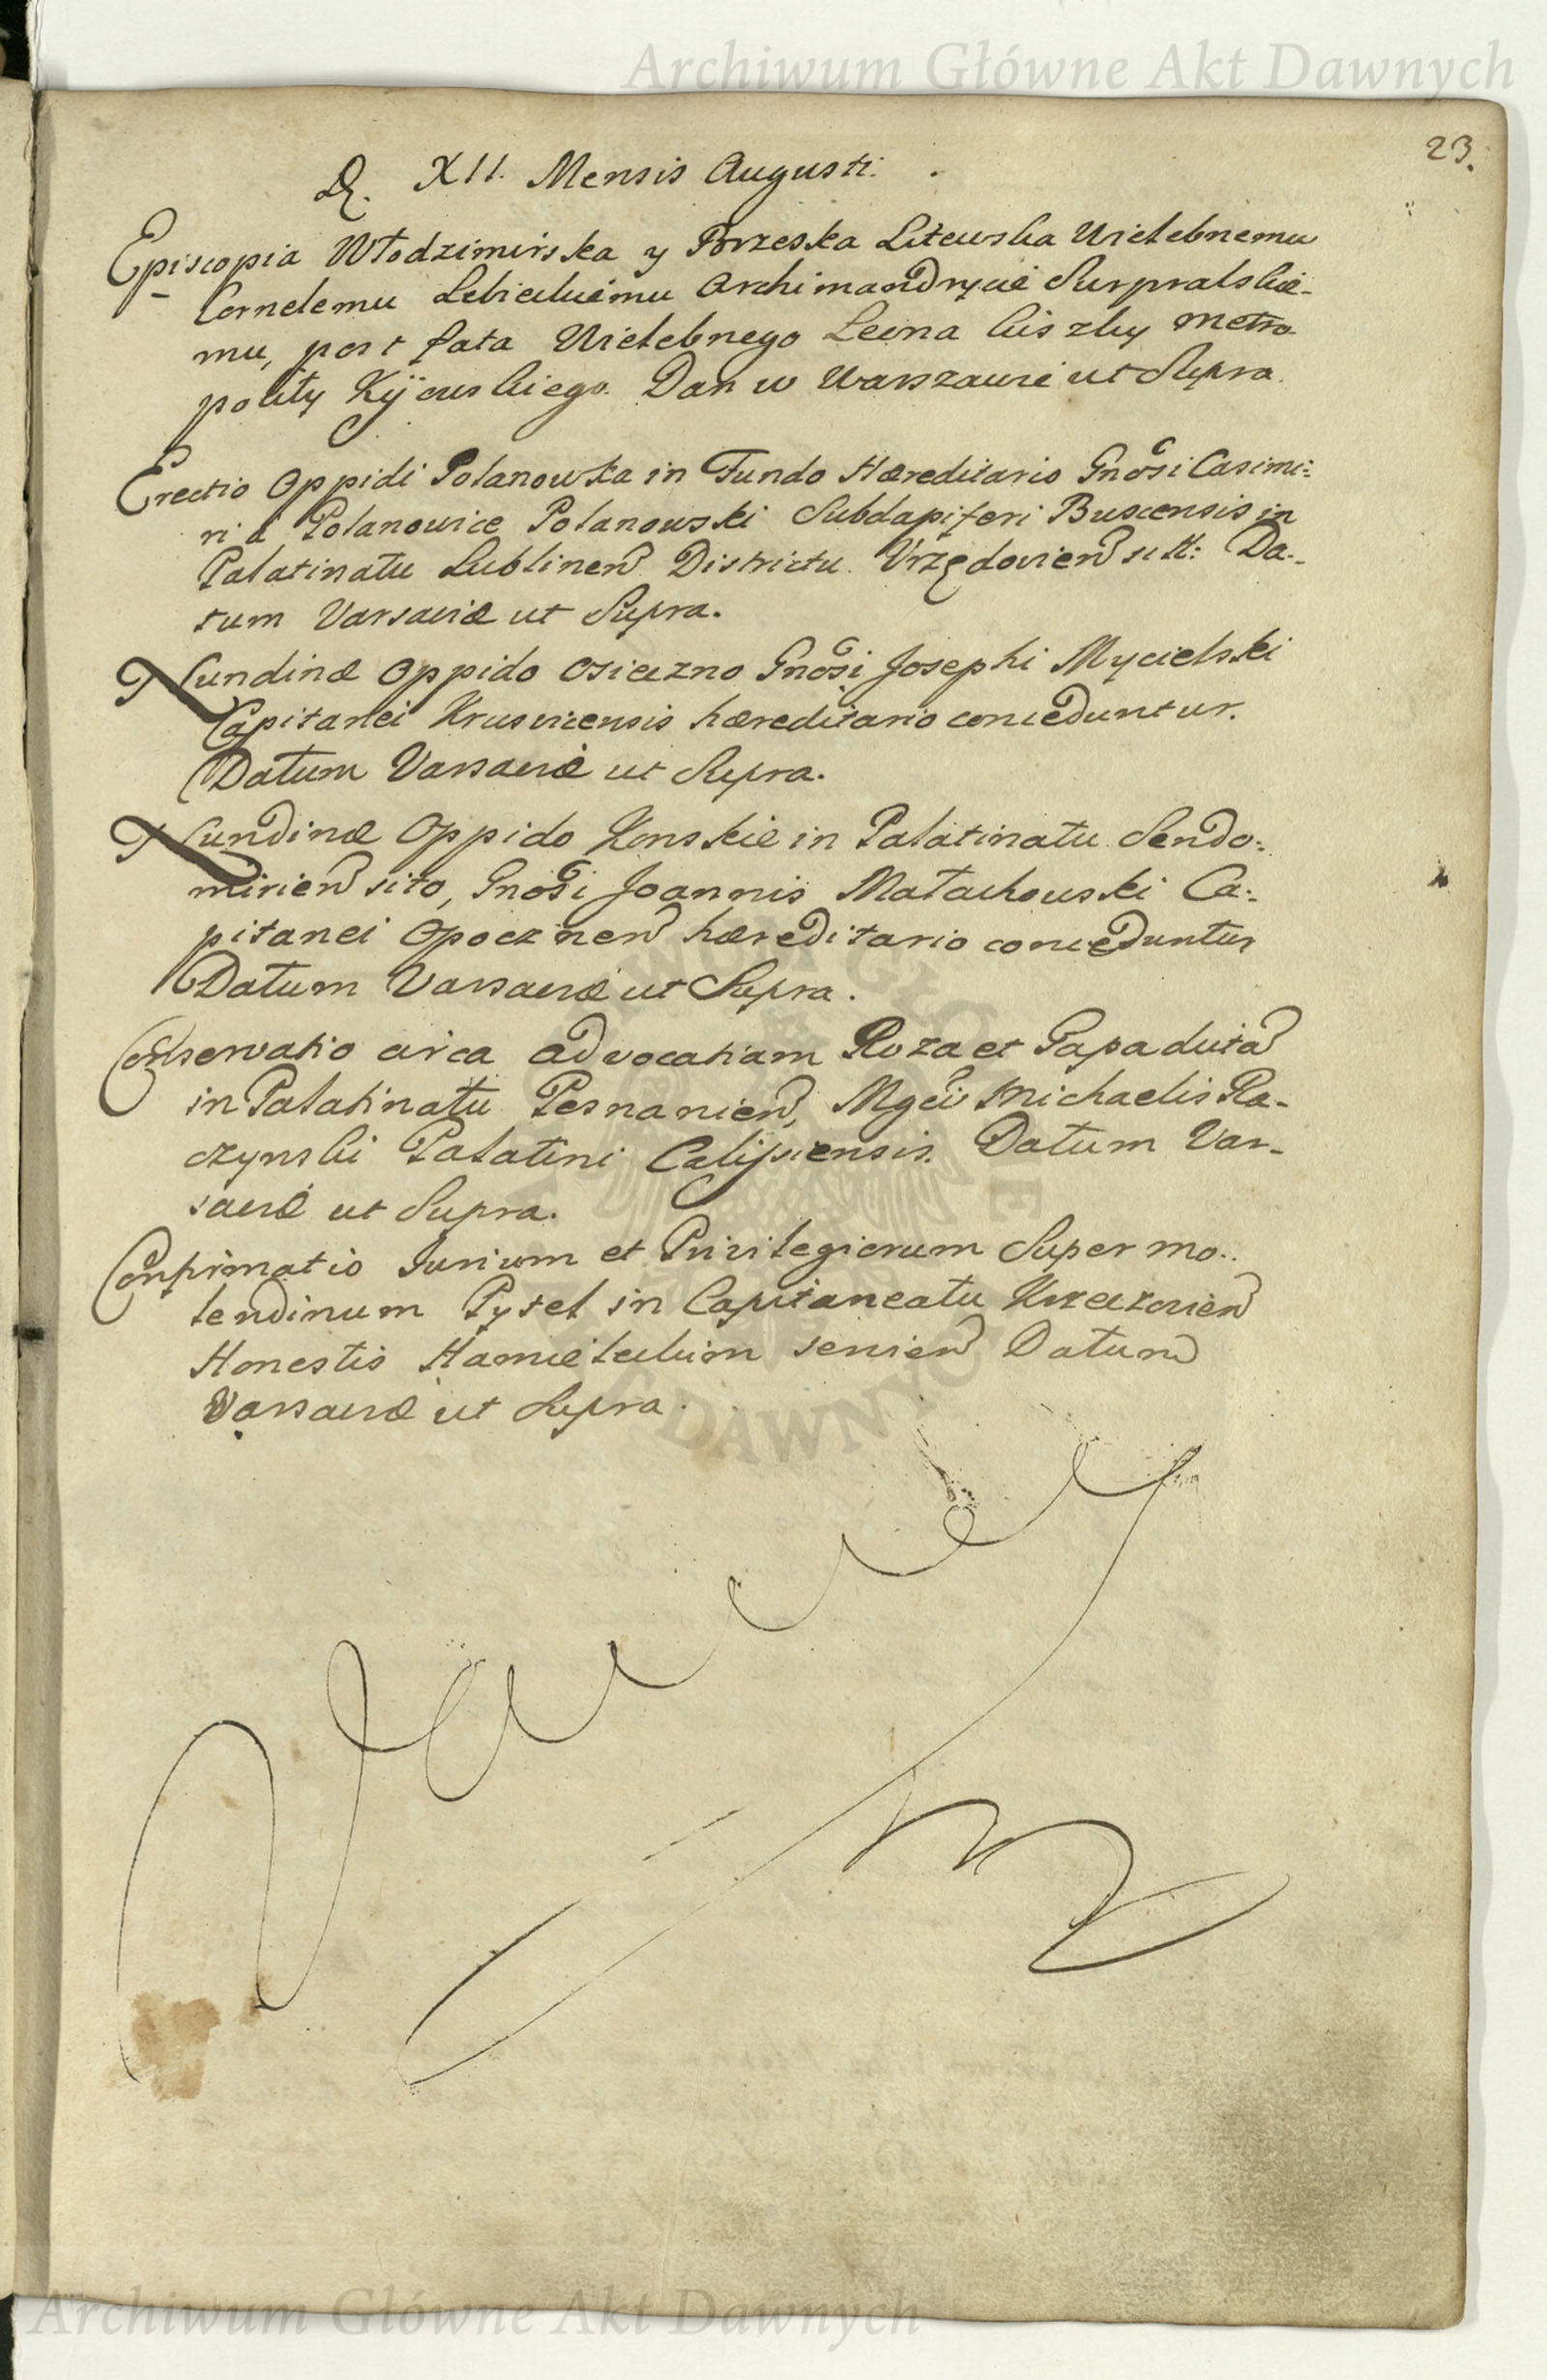 Archiwum Główne Akt Dawnych
23.
D. XII. Mensis Augusti.
Episcopia Włodzimirska y Brzeska Litewska Wielebnemu
Cornelemu Lebieckiemu Archimandrycie Surpralskie-
mu, post fata Wielebnego Leona Kiszky Metro-
polity Kijowskiego. Dan w Warszawie ut Supra.
Erectio Oppidi Polanowka in Fundo Hæreditario Gnosi Casimi:
ri a Polanowice Polanowski Subdapiferi Buscensis in
Palatinatu Lublinen Districtu Vrzędovien sitt: Da-
tum Varsaviæ ut Supra.
Nundinæ Oppido Osieczno Gnosi Josephi Mycielski
Capitanei Krusvicensis hæreditario conceduntur.
Datum Varsaviæ ut Supra.
Nundinæ Oppido Konskie in Palatinatu Sendo:
mirien sito, Gnosi Joannis Małachowski Ca:
pitanei Opocznen hæreditario conceduntur
Datum Varsaviæ ut Supra.
Conservatio circa advocatiam Roza et Papaduta
in Palatinatu Posnanien, Mgci Michaelis Ra-
czynski Palatini Calisiensis. Datum Var-
saviæ ut Supra.
Confirmatio Jurium et Privilegiorum Super mo-
lendinum Pytel in Capitaneatu Krzeczovien
Honestis servien Datum
Varsaviæ ut Supra.
Archiwum Główne Akt Dawnych